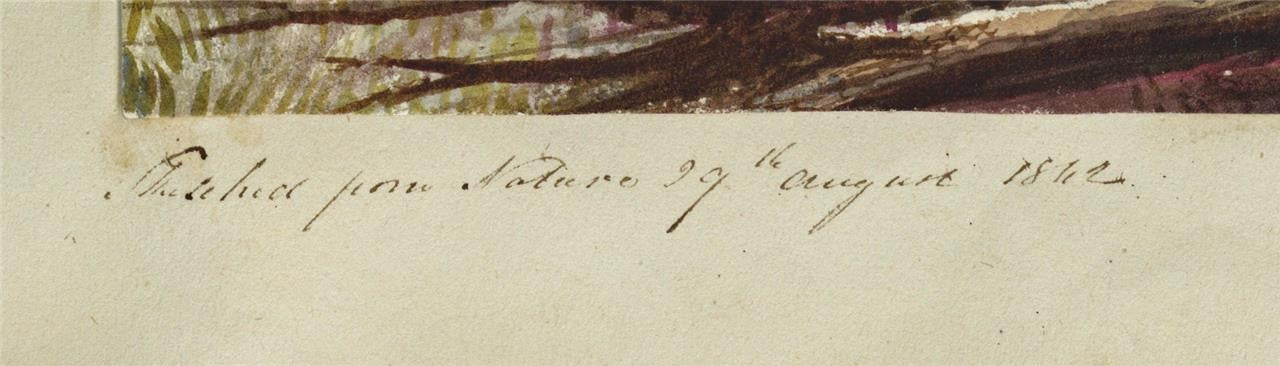 Sketched from Nature 29th august 1842